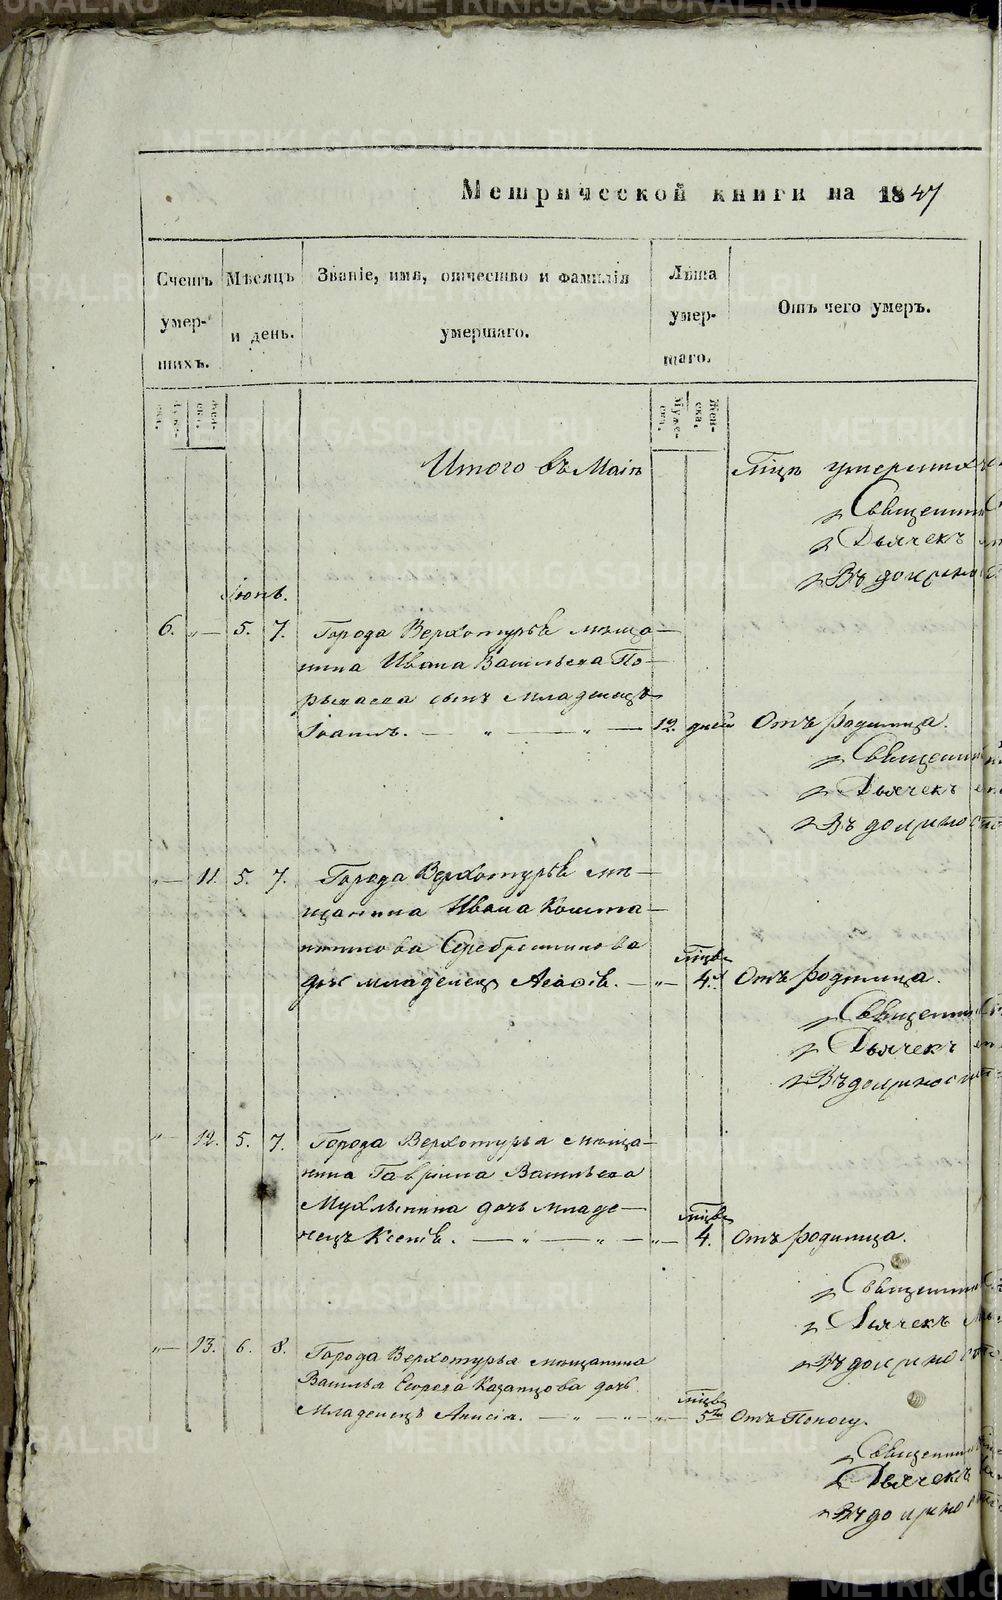 METRIKI.GASO-URAL.RU
Метрической книги на 1847
Счетъ умер-шихъ.
Мѣсяцъ и день.
Званіе, имя, отчество и фамилія умершаго.
Лѣта умер-шаго.
Отъ чего умеръ.
Муже-ска. Жен-ска.
Муже-ска. Жен-ска.
Итого въ Маіѣ
умершихъ
Священни
Дьячекъ
Въ должно
Іюнь.
6. „ 5. 7. Города Верхотурья мѣща-
нина Ивана Васильева По-
сынъ младенецъ
Іоаннъ. „ „ 12. дней Отъ родимца.
Священни
Дьячекъ
Въ должнос
„ 11. 5. 7. Города Верхотурья мѣ-
щанина Ивана Конста-
нтинова Серебренникова
мѣсяц
дочь младенецъ „ 4. Отъ родимца.
Священни
Дьячекъ
Въ должност
„ 12. 5. 7. Города Верхотурья мѣща-
нина Гавріила Васильева
Мухлынина дочь младе-
мѣсяц
нецъ Ксенія. „ „ „ 4. Отъ родимца.
Священни
Дьячекъ
Въ должнос
„ 13. 6. 8. Города Верхотурья мѣщанина
Василья Егорова Казанцова дочь
мѣсяц
Младенецъ Анисія. „ „ „ 5 Отъ Поносу.
Священни
Дьячекъ
Въ должно